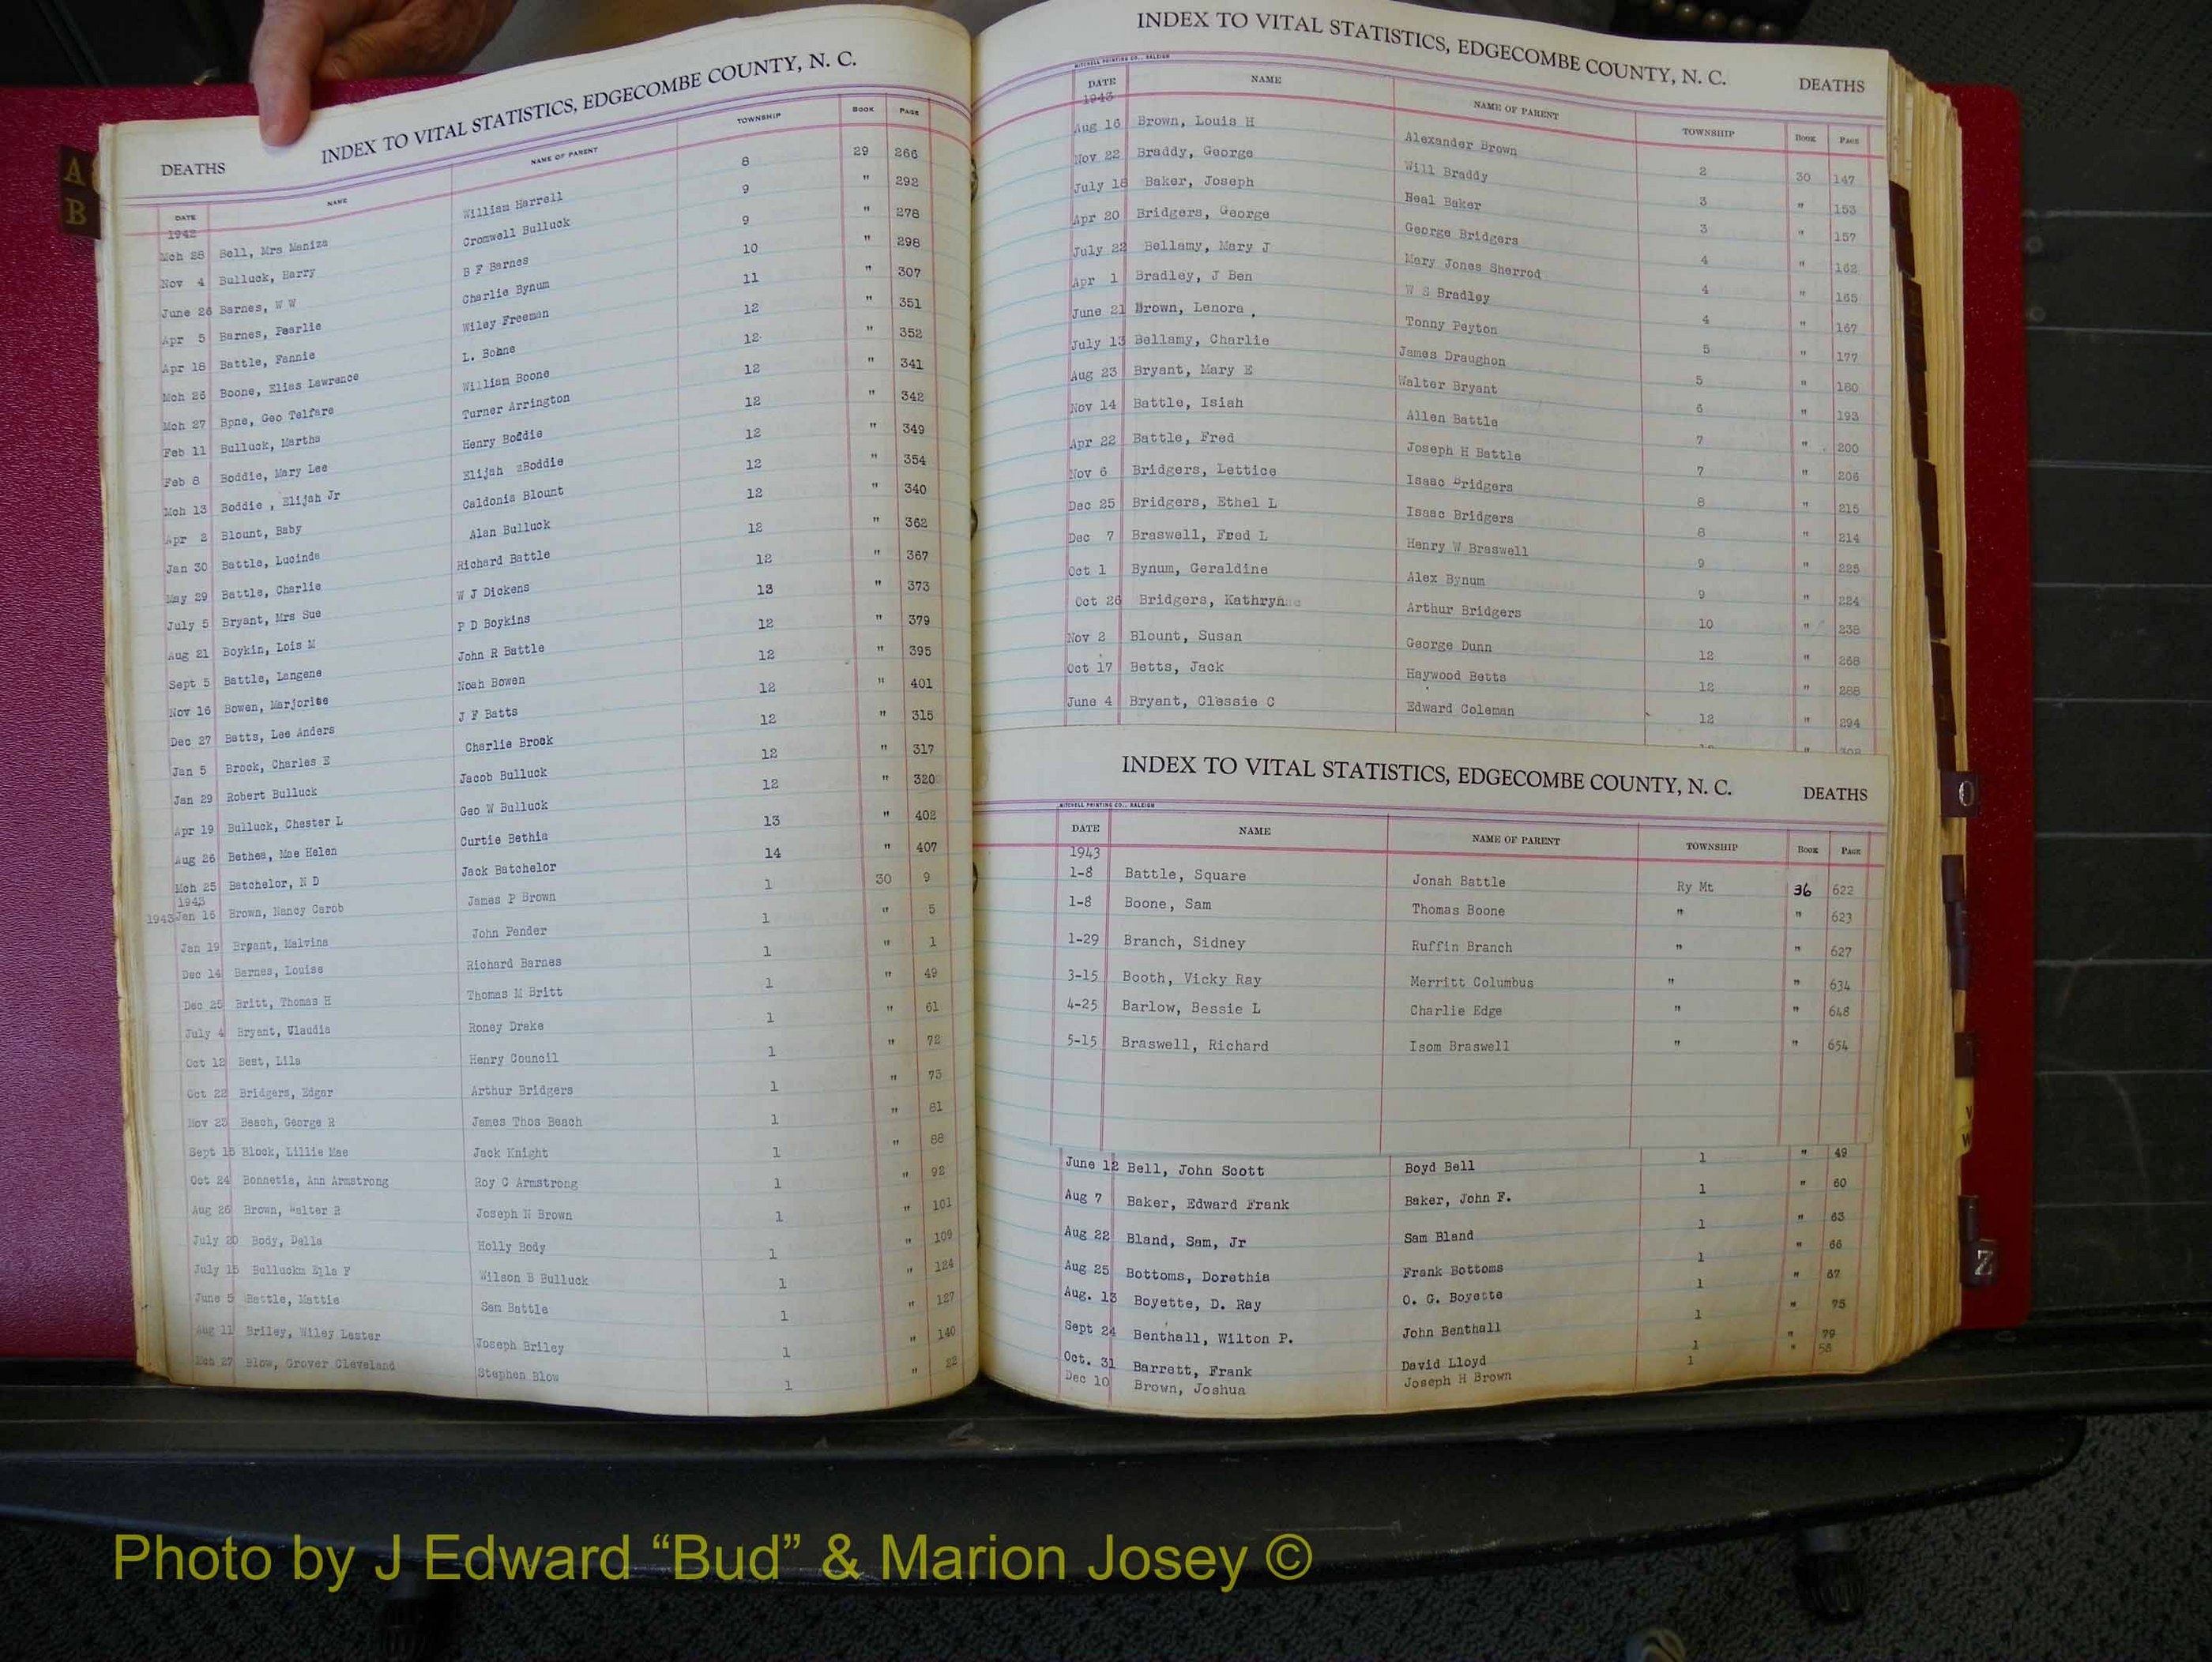 A
B
DEATHS INDEX TO VITAL STATISTICS, EDGECOMBE COUNTY, N. C.
DATE NAME NAME OF PARENT TOWNSHIP BOOK PAGE
1942
Mch 28 Bell, Mrs Maniza William Harrell 8 29 266
Nov 4 Bulluck, Harry Cromwell Bulluck 9 " 292
June 26 Barnes, W W B F Barnes 9 " 278
Apr 5 Barnes, Pearlie Charlie Bynum 10 " 298
Apr 18 Battle, Fannie Wiley Freeman 11 " 307
Mch 26 Boone, Elias Lawrence L. Bohne 12 " 351
Mch 27 Bpne, Geo Telfare William Boone 12 " 352
Feb 11 Bulluck, Martha Turner Arrington 12 " 341
Feb 8 Boddie, Mary Lee Henry Boddie 12 " 342
Mch 13 Boddie , Elijah Jr Elijah Boddie 12 " 349
Apr 2 Blount, Baby Caldonia Blount 12 " 354
Jan 30 Battle, Lucinda Alan Bulluck 12 " 340
May 29 Battle, Charlie Richard Battle 12 " 362
July 5 Bryant, Mrs Sue W J Dickens 12 " 367
Aug 21 Boykin, Lois M P D Boykins 13 " 373
Sept 5 Battle, Langene John R Battle 12 " 379
Nov 16 Bowen, Marjorise Noah Bowen 12 " 395
Dec 27 Batts, Lee Anders J F Batts 12 " 401
Jan 5 Brock, Charles E Charlie Brock 12 " 315
Jan 29 Robert Bulluck Jacob Bulluck 12 " 317
Apr 19 Bulluck, Chester L Geo W Bulluck 12 " 320
Aug 26 Bethea, Mae Helen Curtie Bethia 13 " 402
Mch 25 Batchelor, N D Jack Batchelor 14 " 407
1943
1943 Jan 16 Brown, Nancy Carob James P Brown 1 30 9
Jan 19 Brpant, Malvina John Pender 1 " 5
Dec 14 Barnes, Louise Richard Barnes 1 " 1
Dec 25 Britt, Thomas H Thomas M Britt 1 " 49
July 4 Bryant, Ulaudia Roney Drake 1 " 61
Oct 12 Best, Lila Henry Council 1 " 72
Oct 22 Bridgers, Edgar Arthur Bridgers 1 " 73
Nov 23 Beach, George R James Thos Beach 1 " 81
Sept 15 Block, Lillie Mae Jack Knight 1 " 88
Oct 24 Bonnetia, Ann Armstrong Roy C Armstrong 1 " 92
Aug 26 Brown, Walter R Joseph N Brown 1 " 101
July 20 Body, Della Holly Body 1 " 109
July 15 Bulluckm Ella F Wilson B Bulluck 1 " 124
June 5 Battle, Mattie Sam Battle 1 " 127
Aug 11 Briley, Wiley Lester Joseph Briley 1 " 140
Mch 27 Blow, Grover Cleveland Stephen Blow 1 " 22
INDEX TO VITAL STATISTICS, EDGECOMBE COUNTY, N. C. DEATHS
MITCHELL PRINTING CO., RALEIGH
DATE NAME NAME OF PARENT TOWNSHIP BOOK PAGE
1943
Aug 16 Brown, Louis H Alexander Brown 2 30 147
Nov 22 Braddy, George Will Braddy 3 " 153
July 18 Baker, Joseph Neal Baker 3 " 157
Apr 20 Bridgers, George George Bridgers 4 " 162
July 22 Bellamy, Mary J Mary Jones Sherrod 4 " 165
Apr 1 Bradley, J Ben W S Bradley 4 " 167
June 21 Brown, Lenora Tonny Peyton 5 " 177
July 13 Bellamy, Charlie James Draughon 5 " 180
Aug 23 Bryant, Mary E Walter Bryant 6 " 193
Nov 14 Battle, Isiah Allen Battle 7 " 200
Apr 22 Battle, Fred Joseph H Battle 7 " 206
Nov 6 Bridgers, Lettice Isaac Bridgers 8 " 215
Dec 25 Bridgers, Ethel L Isaac Bridgers 8 " 214
Dec 7 Braswell, Fred L Henry W Braswell 9 " 225
Oct 1 Bynum, Geraldine Alex Bynum 9 " 224
Oct 26 Bridgers, Kathryn Arthur Bridgers 10 " 238
Nov 2 Blount, Susan George Dunn 12 " 268
Oct 17 Betts, Jack Haywood Betts 12 " 288
June 4 Bryant, Clessie C Edward Coleman 12 " 294
INDEX TO VITAL STATISTICS, EDGECOMBE COUNTY, N. C. DEATHS
MITCHELL PRINTING CO., RALEIGH
DATE NAME NAME OF PARENT TOWNSHIP BOOK PAGE
1943
1-8 Battle, Square Jonah Battle Ry Mt 36 622
1-8 Boone, Sam Thomas Boone " " 623
1-29 Branch, Sidney Ruffin Branch " " 627
3-15 Booth, Vicky Ray Merritt Columbus " " 634
4-25 Barlow, Bessie L Charlie Edge " " 648
5-15 Braswell, Richard Isom Braswell " " 654
June 12 Bell, John Scott Boyd Bell 1 " 49
Aug 7 Baker, Edward Frank Baker, John F. 1 " 60
Aug 22 Bland, Sam, Jr Sam Bland 1 " 63
Aug 25 Bottoms, Dorethia Frank Bottoms 1 " 66
Aug. 13 Boyette, D. Ray O. G. Boyette 1 " 67
Sept 24 Benthall, Wilton P. John Benthall 1 " 75
Oct. 31 Barrett, Frank David Lloyd 1 " 79
Dec 10 Brown, Joshua Joseph H Brown 1 " 58
O
V
W
Z
Photo by J Edward “Bud” & Marion Josey ©